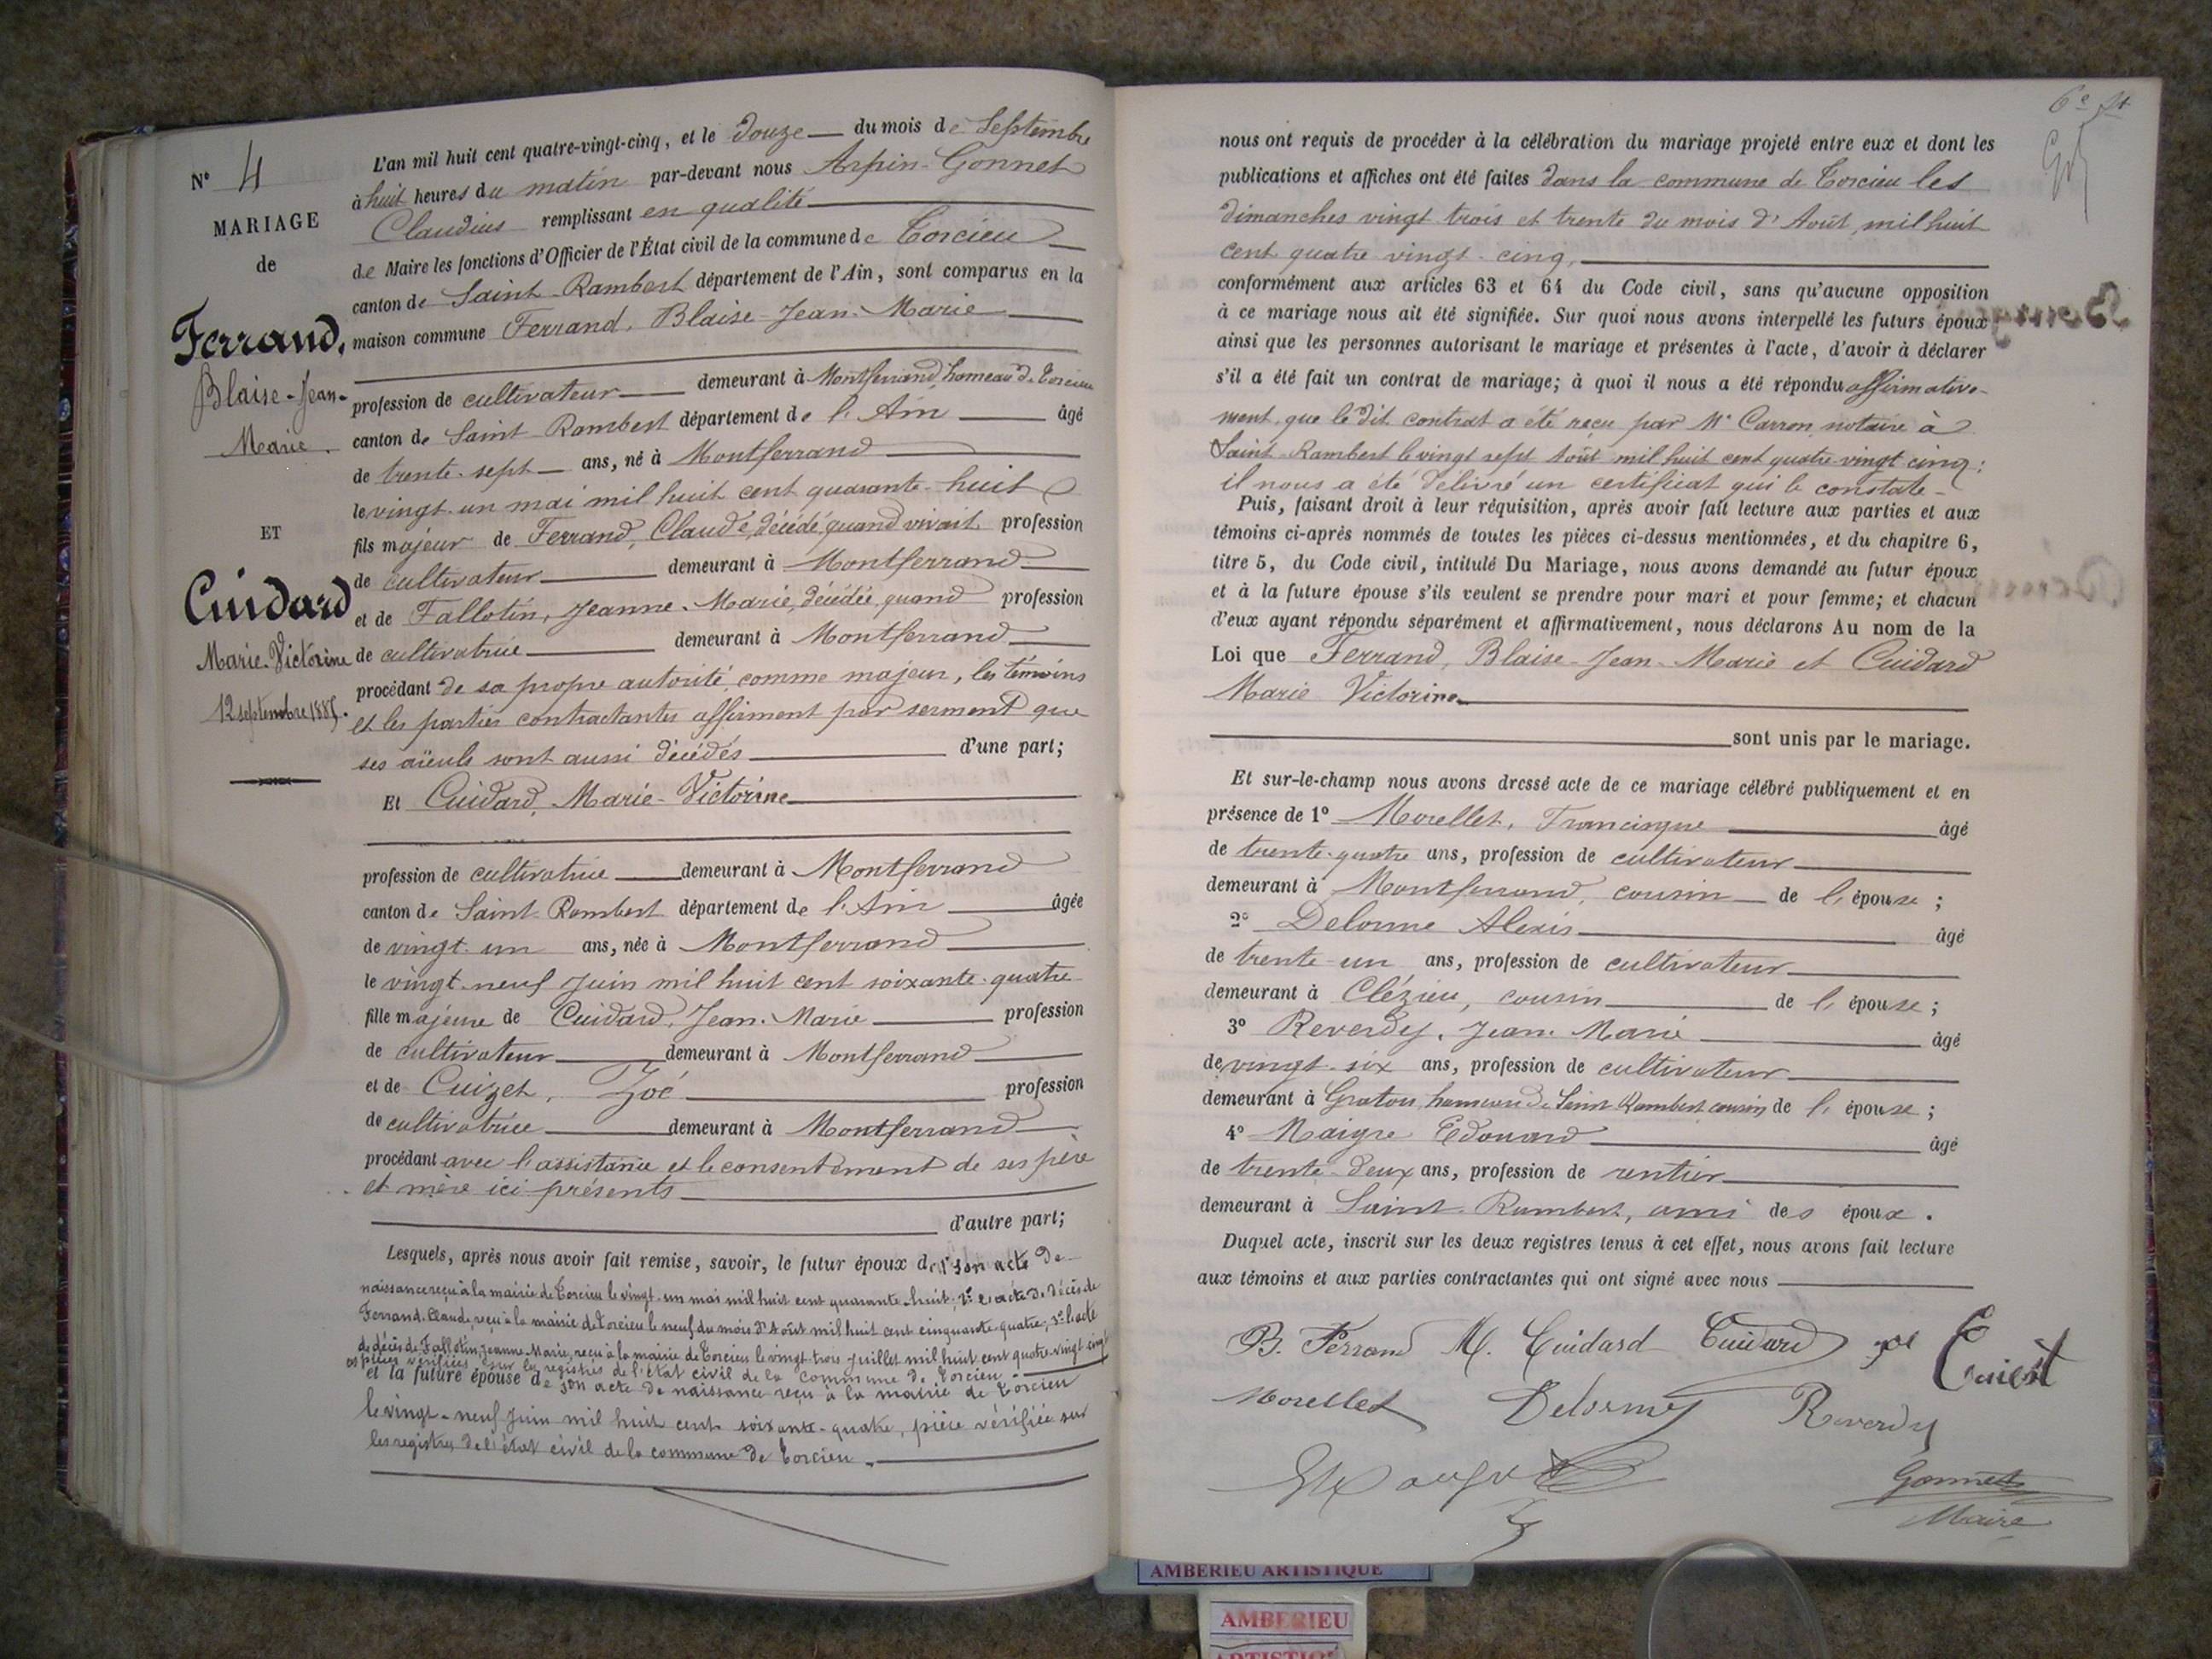 N° 4
MARIAGE
de
Ferrand,
Blaise-Jean-
Marie.
ET
Cuidard
Marie-Victorine
12 septembre 1885.
L'an mil huit cent quatre-vingt-cinq, et le douze du mois de Septembre
à huit heures du matin par-devant nous Arpin-Gonnet
Claudius remplissant en qualité
de Maire les fonctions d'Officier de l'État civil de la commune de Torcieu
canton de Saint-Rambert département de l'Ain, sont comparus en la
maison commune Ferrand, Blaise-Jean-Marie
profession de cultivateur demeurant à Montferrand, hameau de Torcieu
canton de Saint-Rambert département de l'Ain âgé
de trente-sept ans, né à Montferrand
le vingt-un mai mil huit cent quarante-huit
fils majeur de Ferrand, Claude, décédé, quand vivait profession
de cultivateur demeurant à Montferrand
et de Fallotin, Jeanne-Marie, décédée, quand profession
de cultivatrice demeurant à Montferrand
procédant de sa propre autorité, comme majeur, les témoins
et les parties contractantes affirment par serment que
ses aïeuls sont aussi décédés d'une part;
Et Cuidard, Marie-Victorine
profession de cultivatrice demeurant à Montferrand
canton de Saint-Rambert département de l'Ain âgée
de vingt-un ans, née à Montferrand
le vingt-neuf Juin mil huit cent soixante-quatre
fille majeure de Cuidard, Jean-Marie profession
de cultivateur demeurant à Montferrand
et de Cuizet, Zoé profession
de cultivatrice demeurant à Montferrand
procédant avec l'assistance et le consentement de ses père
et mère ici présents
d'autre part;
Lesquels, après nous avoir fait remise, savoir, le futur époux de 1° son acte de
naissance reçu à la mairie de Torcieu le vingt-un mai mil huit cent quarante-huit; 2° l'acte de décès de
Ferrand Claude, reçu à la mairie de Torcieu le neuf du mois d'Août mil huit cent cinquante-quatre; 3° l'acte
de décès de Fallotin, Jeanne-Marie, reçu à la mairie de Torcieu le vingt-trois Juillet mil huit cent quatre-vingt-cinq
es pièces vérifiées sur les registres de l'état civil de la commune de Torcieu
et la future épouse de son acte de naissance reçu à la mairie de Torcieu
le vingt-neuf Juin mil huit cent soixante-quatre, pièce vérifiée sur
les registres de l'état civil de la commune de Torcieu.
nous ont requis de procéder à la célébration du mariage projeté entre eux et dont les
publications et affiches ont été faites dans la commune de Torcieu les
dimanches vingt trois et trente du mois d'Août, mil huit
cent quatre vingt-cinq,
conformément aux articles 63 et 64 du Code civil, sans qu'aucune opposition
à ce mariage nous ait été signifiée. Sur quoi nous avons interpellé les futurs époux
ainsi que les personnes autorisant le mariage et présentes à l'acte, d'avoir à déclarer
s'il a été fait un contrat de mariage; à quoi il nous a été répondu affirmative-
ment que le dit contrat a été reçu par Me Carron notaire à
Saint-Rambert le vingt sept Août mil huit cent quatre-vingt-cinq;
il nous a été délivré un certificat qui le constate-
Puis, faisant droit à leur réquisition, après avoir fait lecture aux parties et aux
témoins ci-après nommés de toutes les pièces ci-dessus mentionnées, et du chapitre 6,
titre 5, du Code civil, intitulé Du Mariage, nous avons demandé au futur époux
et à la future épouse s'ils veulent se prendre pour mari et pour femme; et chacun
d'eux ayant répondu séparément et affirmativement, nous déclarons Au nom de la
Loi que Ferrand, Blaise-Jean-Marie et Cuidard
Marie Victorine
sont unis par le mariage.
Et sur-le-champ nous avons dressé acte de ce mariage célébré publiquement et en
présence de 1° Morellet, Francisque âgé
de trente-quatre ans, profession de cultivateur
demeurant à Montferrand, cousin de l'épouse;
2° Delorme Alexis âgé
de trente-un ans, profession de cultivateur
demeurant à Clézieu, cousin de l'épouse;
3° Reverdy, Jean-Marie âgé
de vingt-six ans, profession de cultivateur
demeurant à Gratoux, hameau de Saint Rambert cousin de l'épouse;
4° Maigre Edouard âgé
de trente-deux ans, profession de rentier
demeurant à Saint-Rambert, ami des époux.
Duquel acte, inscrit sur les deux registres tenus à cet effet, nous avons fait lecture
aux témoins et aux parties contractantes qui ont signé avec nous
B. Ferrand M. Cuidard Cuidard
Morellet Delorme Reverdy
Gonnet
Maire
AMBERIEU ARTISTIQUE
AMBERIEU
ARTISTIQUE